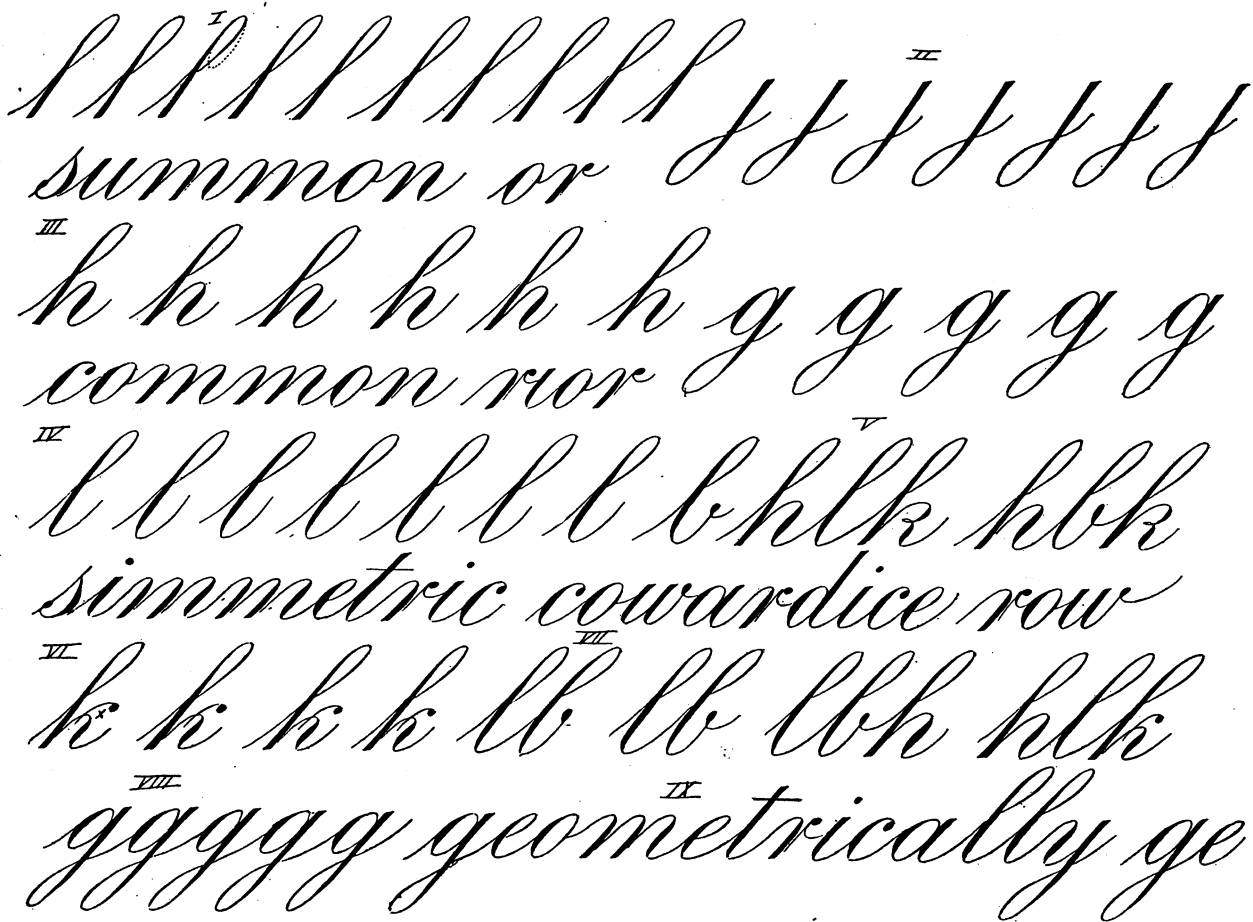 I II
l l l l l l l l l l j j j j j j j
summon or
III
h h h h h h g g g g g
common
IV V
l l l l l l l bhlk hbk
simmetric cowardice row
VI VII
k k k k lb lb lbh hlk
VIII IX
ggggg geometrically ge